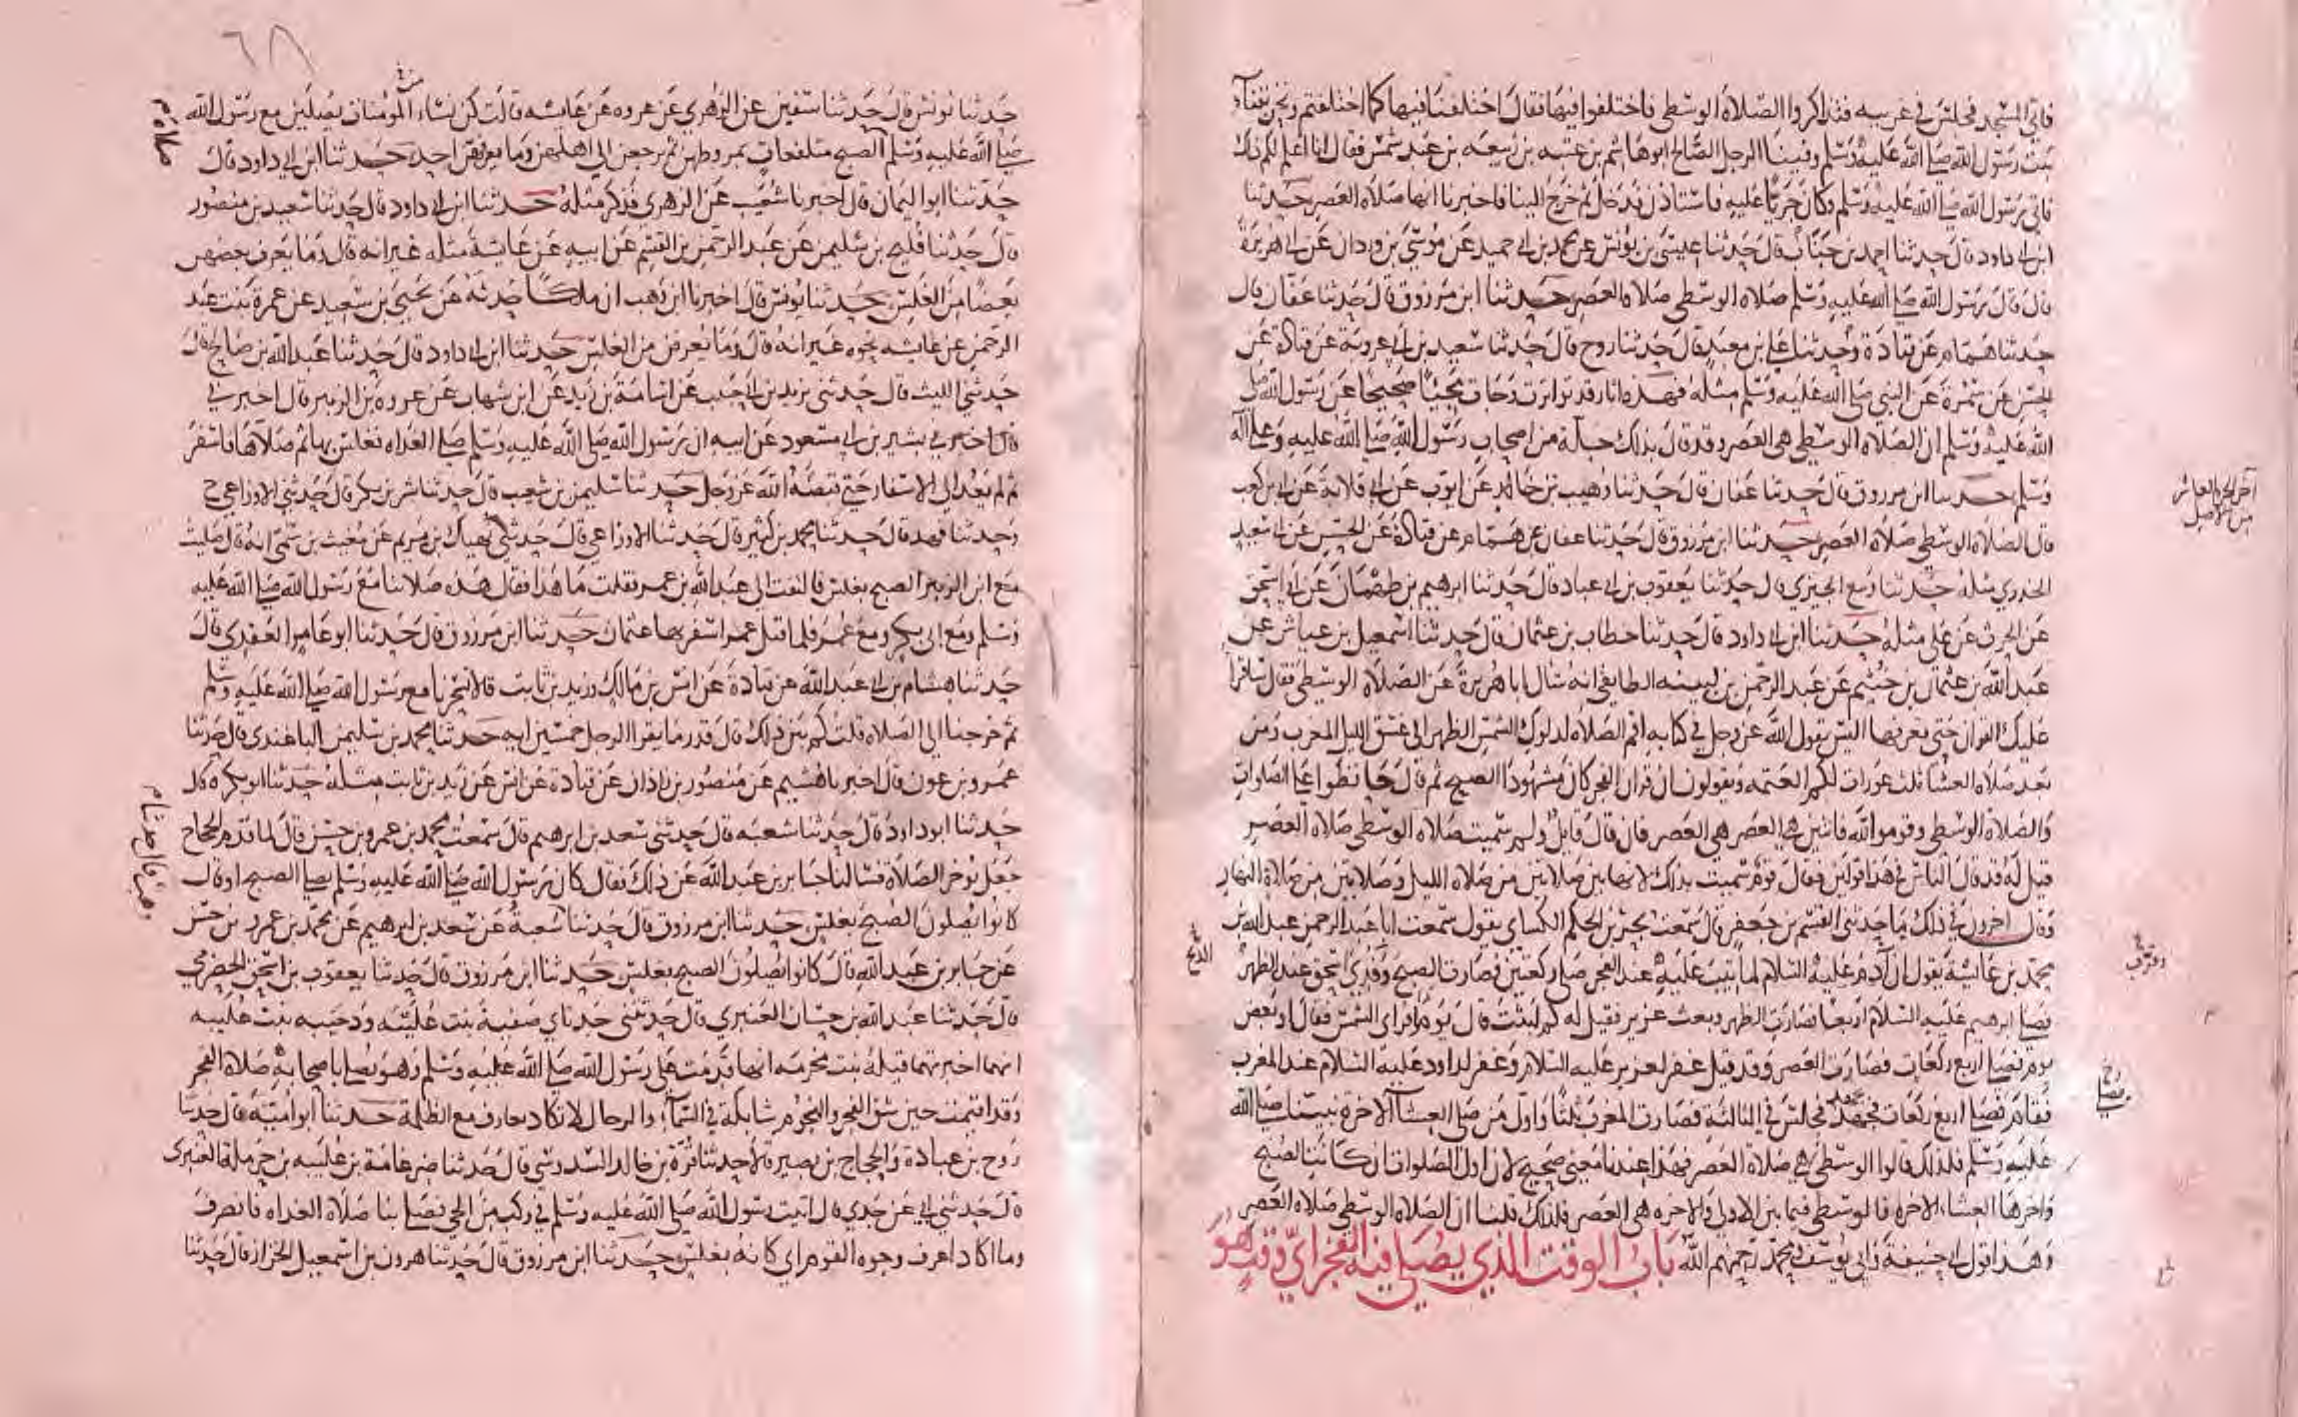 فاتي المسجد فجلس في غربيه فتذاكروا الصلاة الوسطى فاختلفوا فيها فقال اختلفنا فيها كما اختلفتم ونحن بفناء
بيت رسول الله صلى الله عليه وسلم وفينا الرجل الصالح ابو هاشم بن عتبه بن ربيعه بن عبد شمس فقال انا اعلم لكم ذلك
فاتى رسول الله صلى الله عليه وسلم وكان جريا عليه فاستاذن فدخل ثم خرج الينا فاخبرنا انها صلاة العصر حدثنا
ابن ابي داود قال حدثنا احمد بن جناب قال حدثنا عيسى بن يونس عن محمد بن ابي حميد عن موسى بن وردان عن ابي هريرة
قال قال رسول الله صلى الله عليه وسلم صلاه الوسطى صلاه العصر حدثنا ابن مرزوق قال حدثنا عفان قال
حدثنا همام عن قتادة وحدثنا علي بن معبد قال حدثنا روح قال حدثنا سعيد بن ابي عروبة عن قتادة عن
الحسن عن سمرة عن النبي صلى الله عليه وسلم مثله فهذه اثار قد تواترت وجات مجيئا صحيحا عن رسول الله صلى
الله عليه وسلم ان الصلاه الوسطى هي العصر وقد قال بذلك جلة من اصحاب رسول الله صلى الله عليه وعلى آله
وسلم حدثنا ابن مرزوق قال حدثنا عفان قال حدثنا وهيب بن خالد عن ايوب عن ابي قلابة عن ابي بن كعب
قال الصلاه الوسطى صلاة العصر حدثنا ابن مرزوق قال حدثنا عفان عن همام عن قتادة عن الحسن عن ابي سعيد
الخدري مثله حدثنا ربيع الجيزي قال حدثنا يعقوب بن ابي عباد قال حدثنا ابرهيم بن طهمان عن ابي اسحق
عن الحرث عن علي مثله حدثنا ابن ابي داود قال حدثنا خطاب بن عثمان قال حدثنا اسمعيل بن عياش عن
عبد الله بن عثمان بن خثيم عن عبد الرحمن بن لبيبه الطايفي انه سال ابا هريرة عن الصلاة الوسطى فقال ساقرا
عليك القران حتى تعرفها اليس يقول الله عز وجل في كتابه اقم الصلاه لدلوك الشمس الظهر الى غسق الليل المغرب ومن
بعد صلاه العشا ثلث عورات لكم العتمه ويقولون ان قران الفجر كان مشهودا الصبح ثم قال حافظوا على الصلوات
والصلاة الوسطى وقوموا لله قانتين هي العصر هي العصر فان قال قايل ولم سميت صلاه الوسطى صلاه العصر
قيل له قد قال الناس في هذا قولين فقال قوم سميت بذلك لانها بين صلاتين من صلاه الليل وصلاتين من صلاة النهار
وقال اخرون في ذلك ما حدثني القسم بن جعفر قال سمعت بحر بن الحكم الكيساي يقول سمعت ابا عبد الرحمن عبد الله بن
محمد بن عايشة يقول ان آدم عليه السلام لما تيب عليه عند الفجر صلى ركعتين فصارت الصبح وفدي اسحق عند الظهر
فصلى ابرهيم عليه السلام اربعا فصارت الظهر وبعث عزير فقيل له كم لبثت قال يوما فراى الشمس فقال او بعض
يوم فصلى اربع ركعات فصارت العصر وقد قيل غفر لعزير عليه السلام وغفر لداود عليه السلام عند المغرب
فقام فصلى اربع ركعات فجهد فجلس في الثالثه فصارت المغرب ثلثا واول من صلى العشا الآخرة نبينا صلى الله
عليه وسلم فلذلك قالوا الوسطى هي صلاة العصر فهذا عندنا معنى صحيح لان اول الصلوات ان كانت الصبح
واخرها العشاء الاخره فالوسطى فيما بين الاولى والاخره هي العصر فلذلك قلنا ان الصلاة الوسطى صلاه العصر
وهذا قول ابي حنيفة وابي يوسف ومحمد رحمهم الله باب الوقت الذي يصلي فيه الفجر اي وقت هو
آخر الجزء العاشر
من الاصل
حدثنا يونس قال حدثنا سفين عن الزهري عن عروه عن عايشه قالت كن نساء المومنات يصلين مع رسول الله
صلى الله عليه وسلم الصبح متلفعات بمروطهن ثم يرجعن الى اهلهن وما يعرفهن احد حدثنا ابن ابي داود قال
حدثنا ابو اليمان قال اخبرنا شعيب عن الزهري فذكر مثله حدثنا ابن ابي داود قال حدثنا سعيد بن منصور
قال حدثنا فليح بن سليمن عن عبد الرحمن بن القسم عن ابيه عن عايشة مثله غير انه قال وما يعرف بعضهن
بعضا من الغلس حدثنا يونس قال اخبرنا ابن وهب ان مالكا حدثه عن يحيى بن سعيد عن عمرة بنت عبد
الرحمن عن عايشه نحوه غير انه قال وما يعرفن من الغلس حدثنا ابن ابي داود قال حدثنا عبد الله بن صالح قال
حدثني الليث قال حدثني يزيد بن ابي حبيب عن اسامة بن زيد عن ابن شهاب عن عروه بن الزبير قال اخبرني
قال اخبرني بشير بن ابي مسعود عن ابيه ان رسول الله صلى الله عليه وسلم صلى الغداه فغلس بها ثم صلاها فاسفر
ثم لم يعد الى الاسفار حتى قبضه الله عز وجل حدثنا سليمن بن شعيب قال حدثنا بشر بن بكر قال حدثني الاوزاعي ح
وحدثنا فهد قال حدثنا محمد بن كثير قال حدثنا الاوزاعي قال حدثني نهيك بن يريم عن مغيث بن سمي انه قال صليت
مع ابن الزبير الصبح بغلس فالتفت الى عبد الله بن عمر فقلت ما هذا فقال هذه صلاتنا مع رسول الله صلى الله عليه
وسلم ومع ابي بكر ومع عمر فلما قتل عمر اسفر بها عثمان حدثنا ابن مرزوق قال حدثنا ابو عامر العقدي قال
حدثنا هشام بن ابي عبد الله عن قتادة عن انس بن مالك وزيد بن ثابت قالا تسحرنا مع رسول الله صلى الله عليه وسلم
ثم خرجنا الى الصلاه قلت كم بين ذلك قال قدر ما يقرا الرجل خمسين ايه حدثنا محمد بن سليمن الباغندي قال حدثنا
عمرو بن عون قال اخبرنا هشيم عن منصور بن زاذان عن قتادة عن انس عن زيد بن ثابت مثله حدثنا ابو بكره قال
حدثنا ابو داود قال حدثنا شعبه قال حدثني سعد بن ابرهيم قال سمعت محمد بن عمرو بن حسن قال لما قدم الحجاج
جعل يوخر الصلاة فسالنا جابر بن عبد الله عن ذلك فقال كان رسول الله صلى الله عليه وسلم يصلي الصبح او قال
كانوا يصلون الصبح بغلس حدثنا ابن مرزوق قال حدثنا شعبة عن سعد بن ابرهيم عن محمد بن عمرو بن حسن
عن جابر بن عبد الله قال كانوا يصلون الصبح بغلس حدثنا ابن مرزوق قال حدثنا يعقوب بن اسحق الحضرمي
قال حدثنا عبد الله بن حسان العنبري قال حدثتني جدتاي صفية بنت عليبه ودحيبه بنت عليبه
انهما اخبرتهما قيلة بنت مخرمه انها قدمت على رسول الله صلى الله عليه وسلم وهو يصلي باصحابه صلاة الفجر
وقد اقيمت حين شق الفجر والنجوم شابكة في السماء والرجال لا تكاد تعارف مع الظلمة حدثنا ابو امية قال حدثنا
روح بن عبادة والحجاج بن نصير قالا حدثنا قرة بن خالد السدوسي قال حدثنا ضرغامة بن عليبه بن حرملة العنبرى
قال حدثني ابي عن جدي قال اتيت رسول الله صلى الله عليه وسلم في ركب من الحي فصلى بنا صلاة الغداه فانصرف
وما اكاد اعرف وجوه القوم اي كانه بغلس حدثنا ابن مرزوق قال حدثنا هرون بن اسمعيل الخزاز قال حدثنا